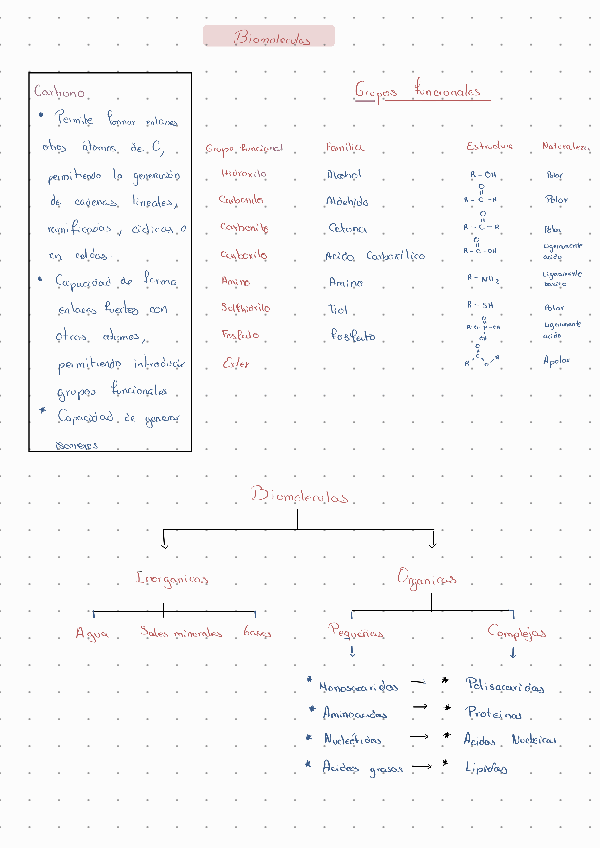 Biomoleculas
Carbono
* Permite formar enlaces
otros átomos de C,
permitiendo la generación
de cadenas, lineales,
ramificadas, cíclicas o
en celdas.
* Capacidad de formar
enlaces fuertes con
otros átomos,
permitiendo introducir
grupos funcionales
* Capacidad de generar
isomeros
Grupos funcionales
Grupo funcional Familia Estructura Naturaleza
Hidroxilo Alcohol R - OH Polar
Carbonilo Aldehido R - C - H O Polar
Carbonilo Cetona R - C - R O Polar
Carboxilo Acido Carboxílico R - C - OH O Ligeramente acido
Amino Amina R - NH2 Ligeramente basico
Sulfhidrilo Tiol R - SH Polar
Fosfato Fosfato R-O-P-OH O OH Ligeramente acido
Ester R C O O R Apolar
Biomoleculas
Inorganicas Organicas
Agua Sales minerales Gases Pequeñas Complejas
* Monosacaridos → * Polisacaridos
* Aminoacidos → * Proteinas
* Nucleótidos → * Acidos Nucleicos
* Acidos grasos → * Lipidos